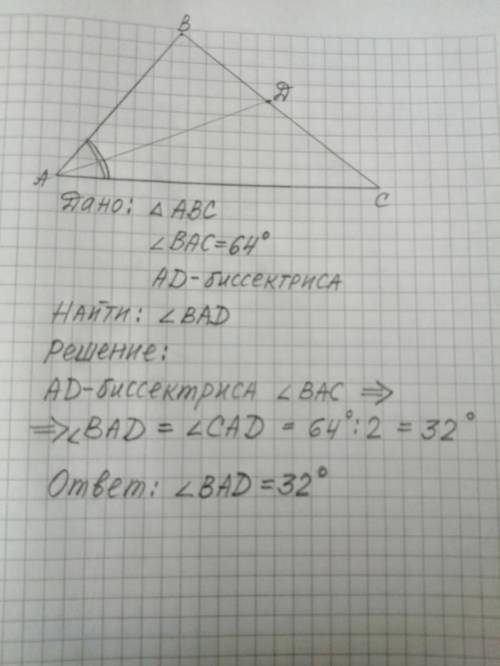 B
D
A
C
Дано: △ABC
∠BAC=64°
AD-биссектриса
Найти: ∠BAD
Решение:
AD-биссектриса ∠BAC ⇒
⇒∠BAD = ∠CAD = 64°:2 = 32°
Ответ: ∠BAD=32°